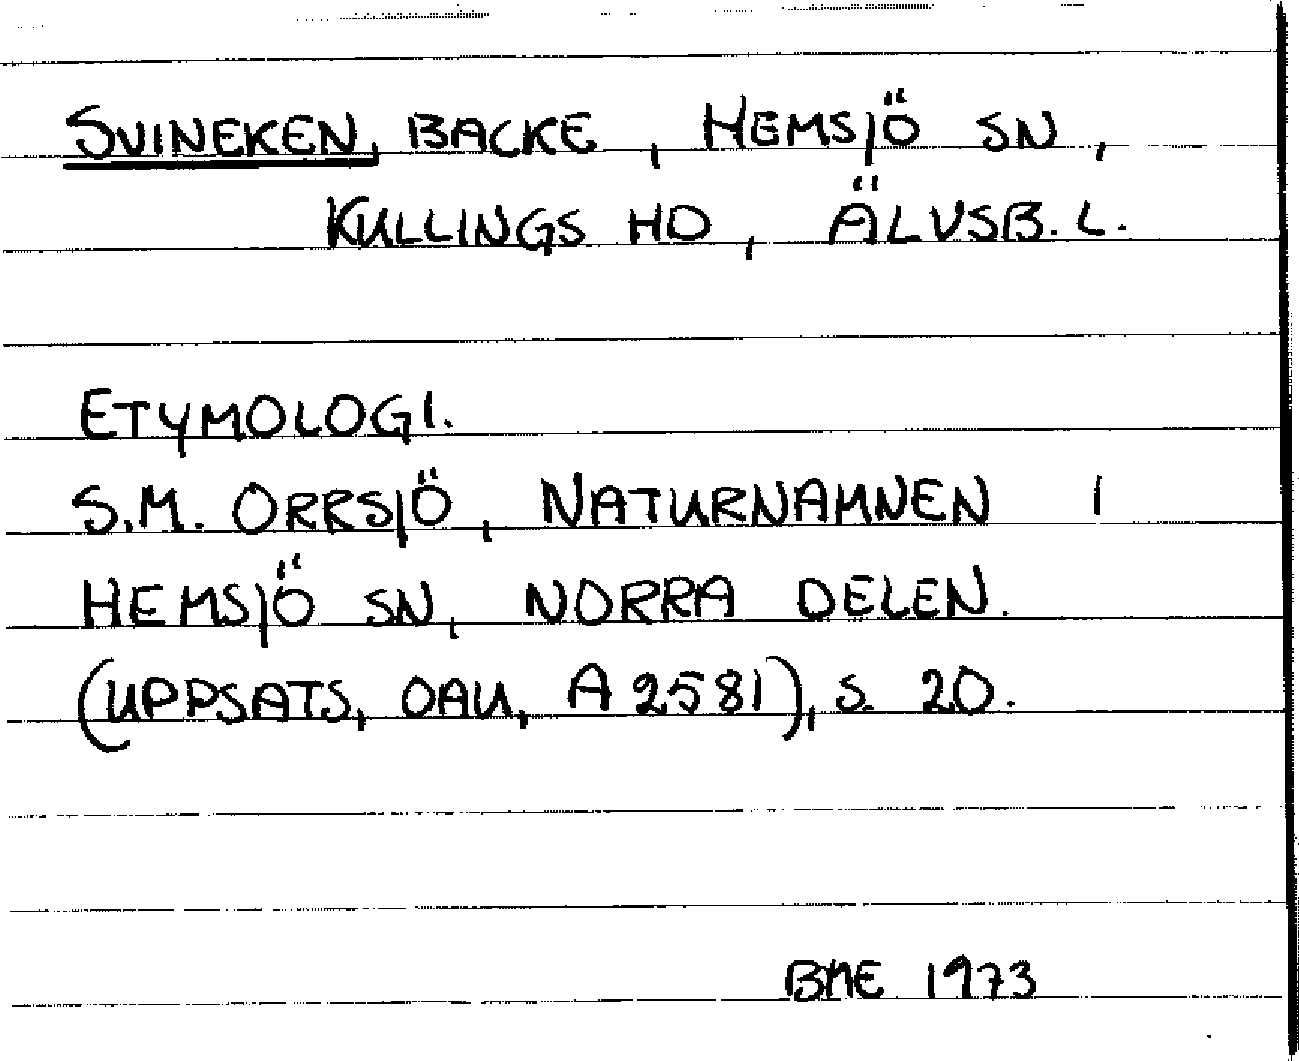 SVINEKEN, BACKE, HEMSJÖ SN,
KULLINGS HD, ÄLVSB. L.
ETYMOLOGI.
S.M. ORRSJÖ, NATURNAMNEN I
HEMSJÖ SN, NORRA DELEN.
(UPPSATS, OAU, A 2581), S. 20.
BME 1973